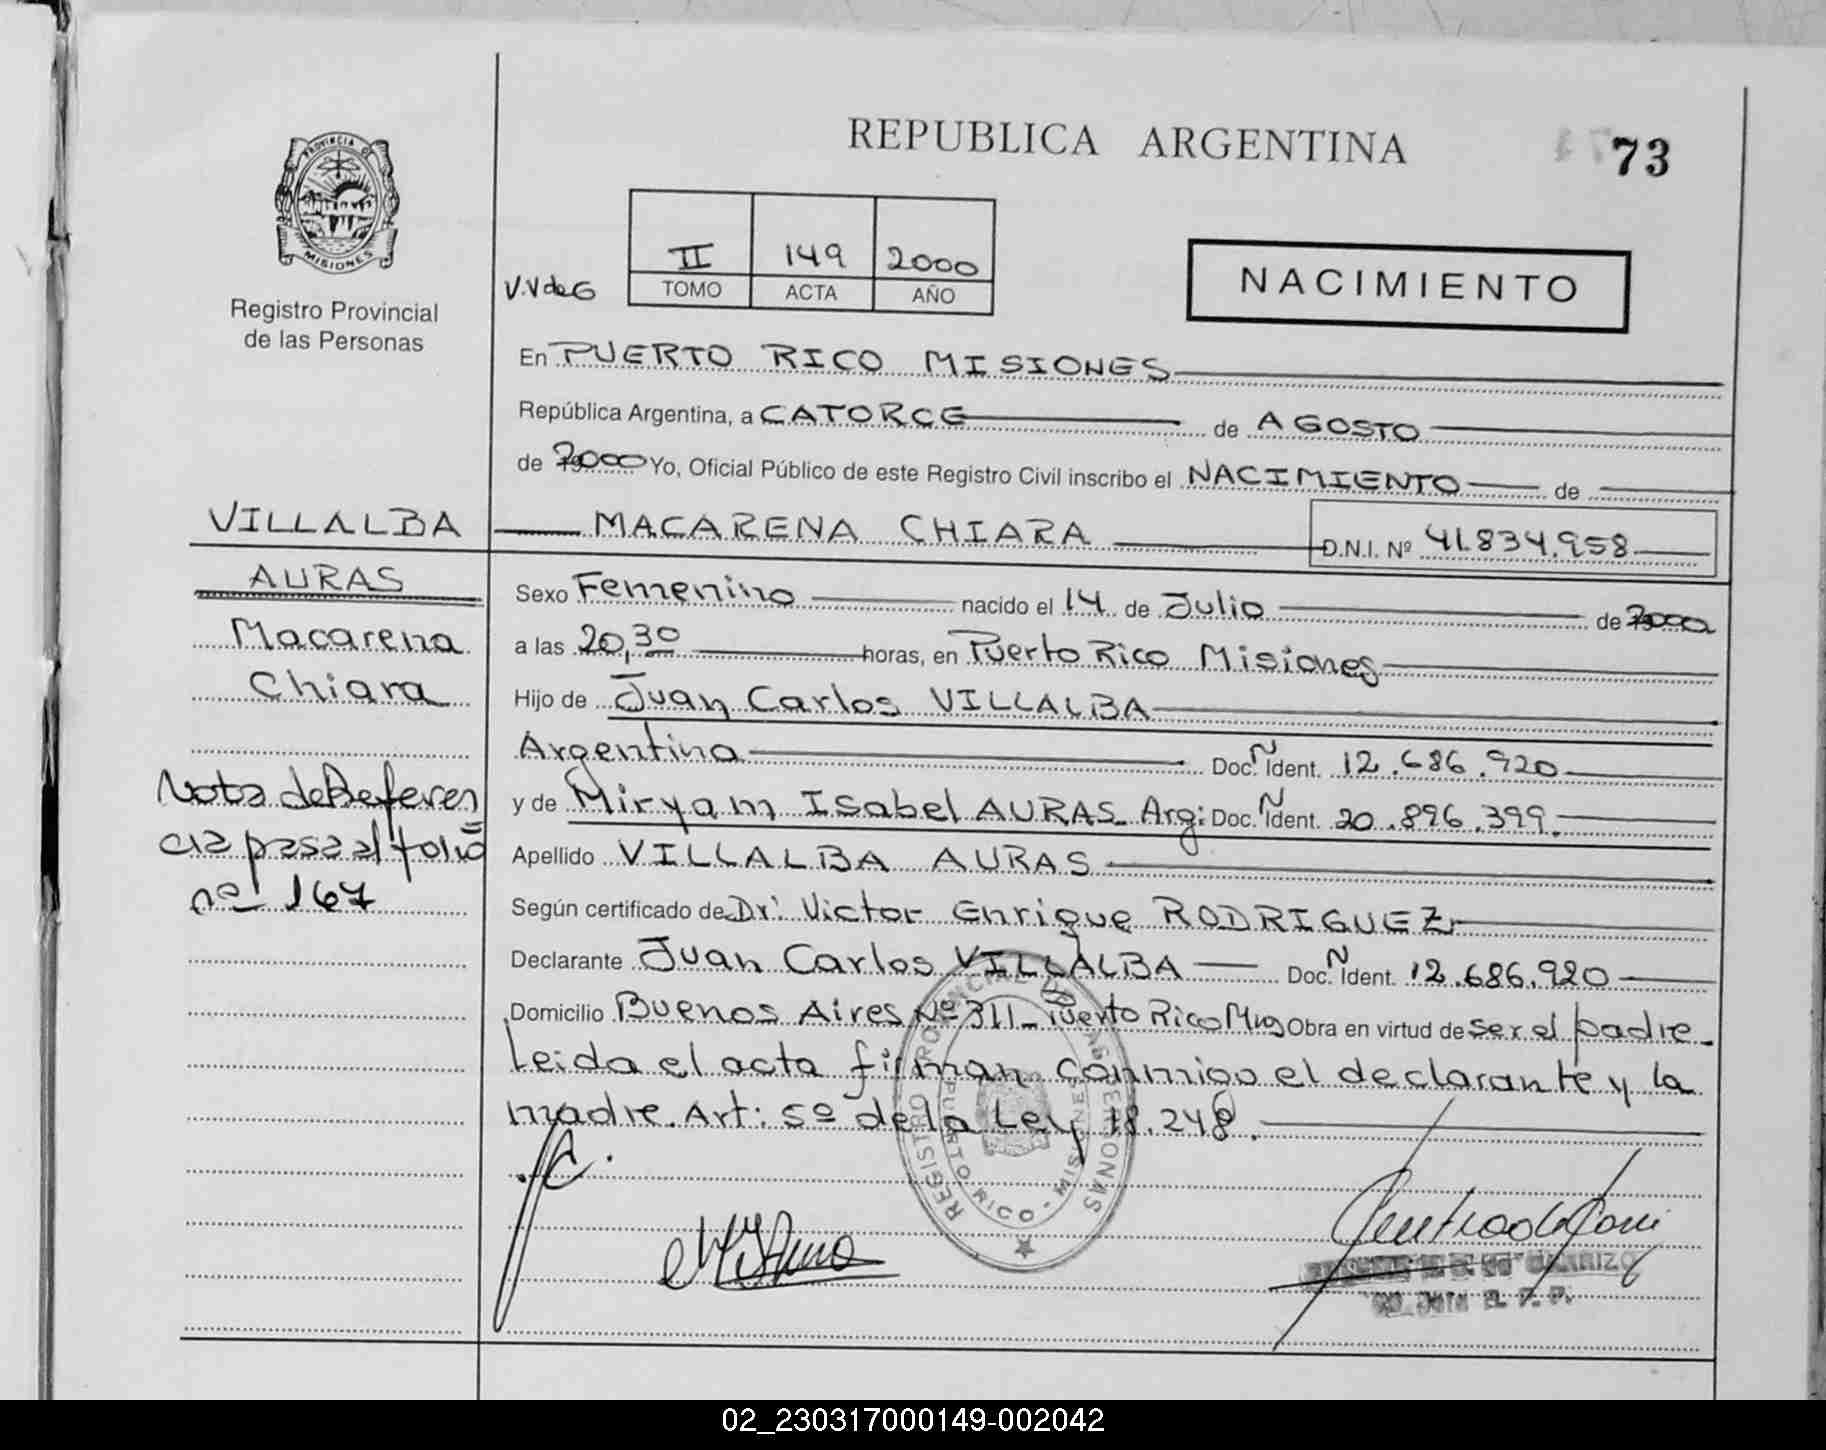 REPUBLICA ARGENTINA
73
PROVINCIA DE
MISIONES
Registro Provincial
de las Personas
V.V de G
II 149 2000
TOMO ACTA AÑO
NACIMIENTO
En PUERTO RICO MISIONES
República Argentina, a CATORCE de AGOSTO
de 2000 Yo, Oficial Público de este Registro Civil inscribo el NACIMIENTO de
VILLALBA
AURAS
Macarena
Chiara
Nota de Referen
cia pasa al folio
nº 167
MACARENA CHIARA D.N.I. Nº 41.834.958
Sexo Femenino nacido el 14 de Julio de 2000
a las 20,30 horas, en Puerto Rico Misiones
Hijo de Juan Carlos VILLALBA
Argentino Doc. Ñ Ident. 12.686.920
y de Miryam Isabel AURAS Arg: Doc. Ñ Ident. 20.896.399.
Apellido VILLALBA AURAS
Según certificado de Dr: Victor Enrique RODRIGUEZ
Declarante Juan Carlos VILLALBA Doc. Ñ Ident. 12.686.920
Domicilio Buenos Aires Nº 311_ Puerto Rico Mnes Obra en virtud de ser el padre_
Leida el acta firman conmigo el declarante y la
madre. Art: 5º de la Ley 18.248.
REGISTRO PROVINCIAL DE LAS PERSONAS
PUERTO RICO - MISIONES
02_230317000149-002042